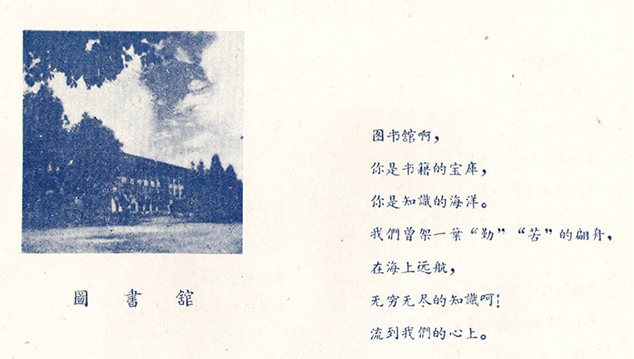 圖書舘
图书舘啊，
你是书籍的宝库，
你是知識的海洋。
我們曾架一葉“勤”“苦”的翩舟，
在海上远航，
无穷无尽的知識呵！
流到我們的心上。